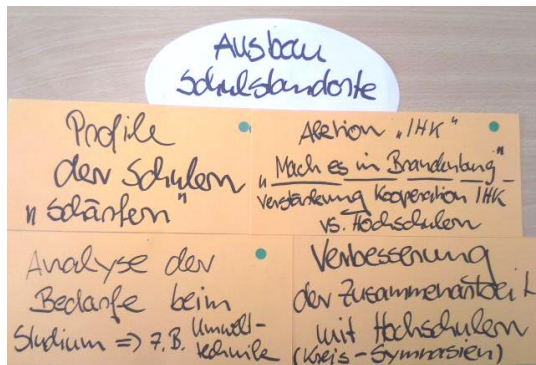 Ausbau
Schulstandorte
Profile
der Schulen
"schärfen"
Aktion "IHK"
"Mach es in Brandenburg" -
Verstärkung Kooperation IHK
vs. Hochschulen
Analyse der
Bedarfe beim
Studium => z.B. Umwelt-
technik
Verbesserung
der Zusammenarbeit
mit Hochschulen
(Kreis-Gymnasien)